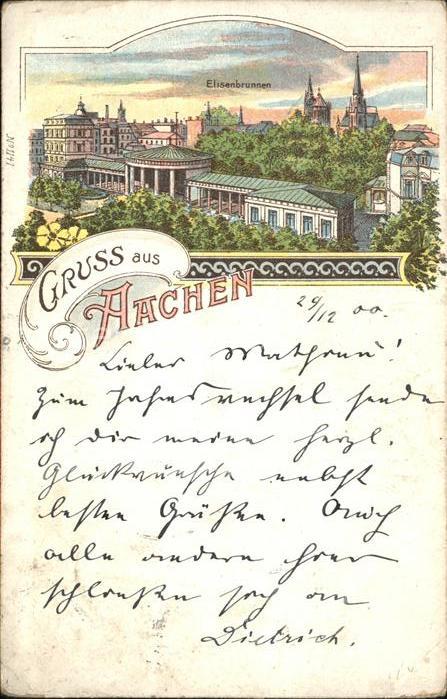 Elisenbrunnen
GRUSS aus
AACHEN
29/12 00.
Lieber
Zum Jahreswechsel sende
ich dir meine herzl.
Glückwünsche nebst
besten Grüßen. Auch
alle andern hier
schließen sich an
Dietrich.